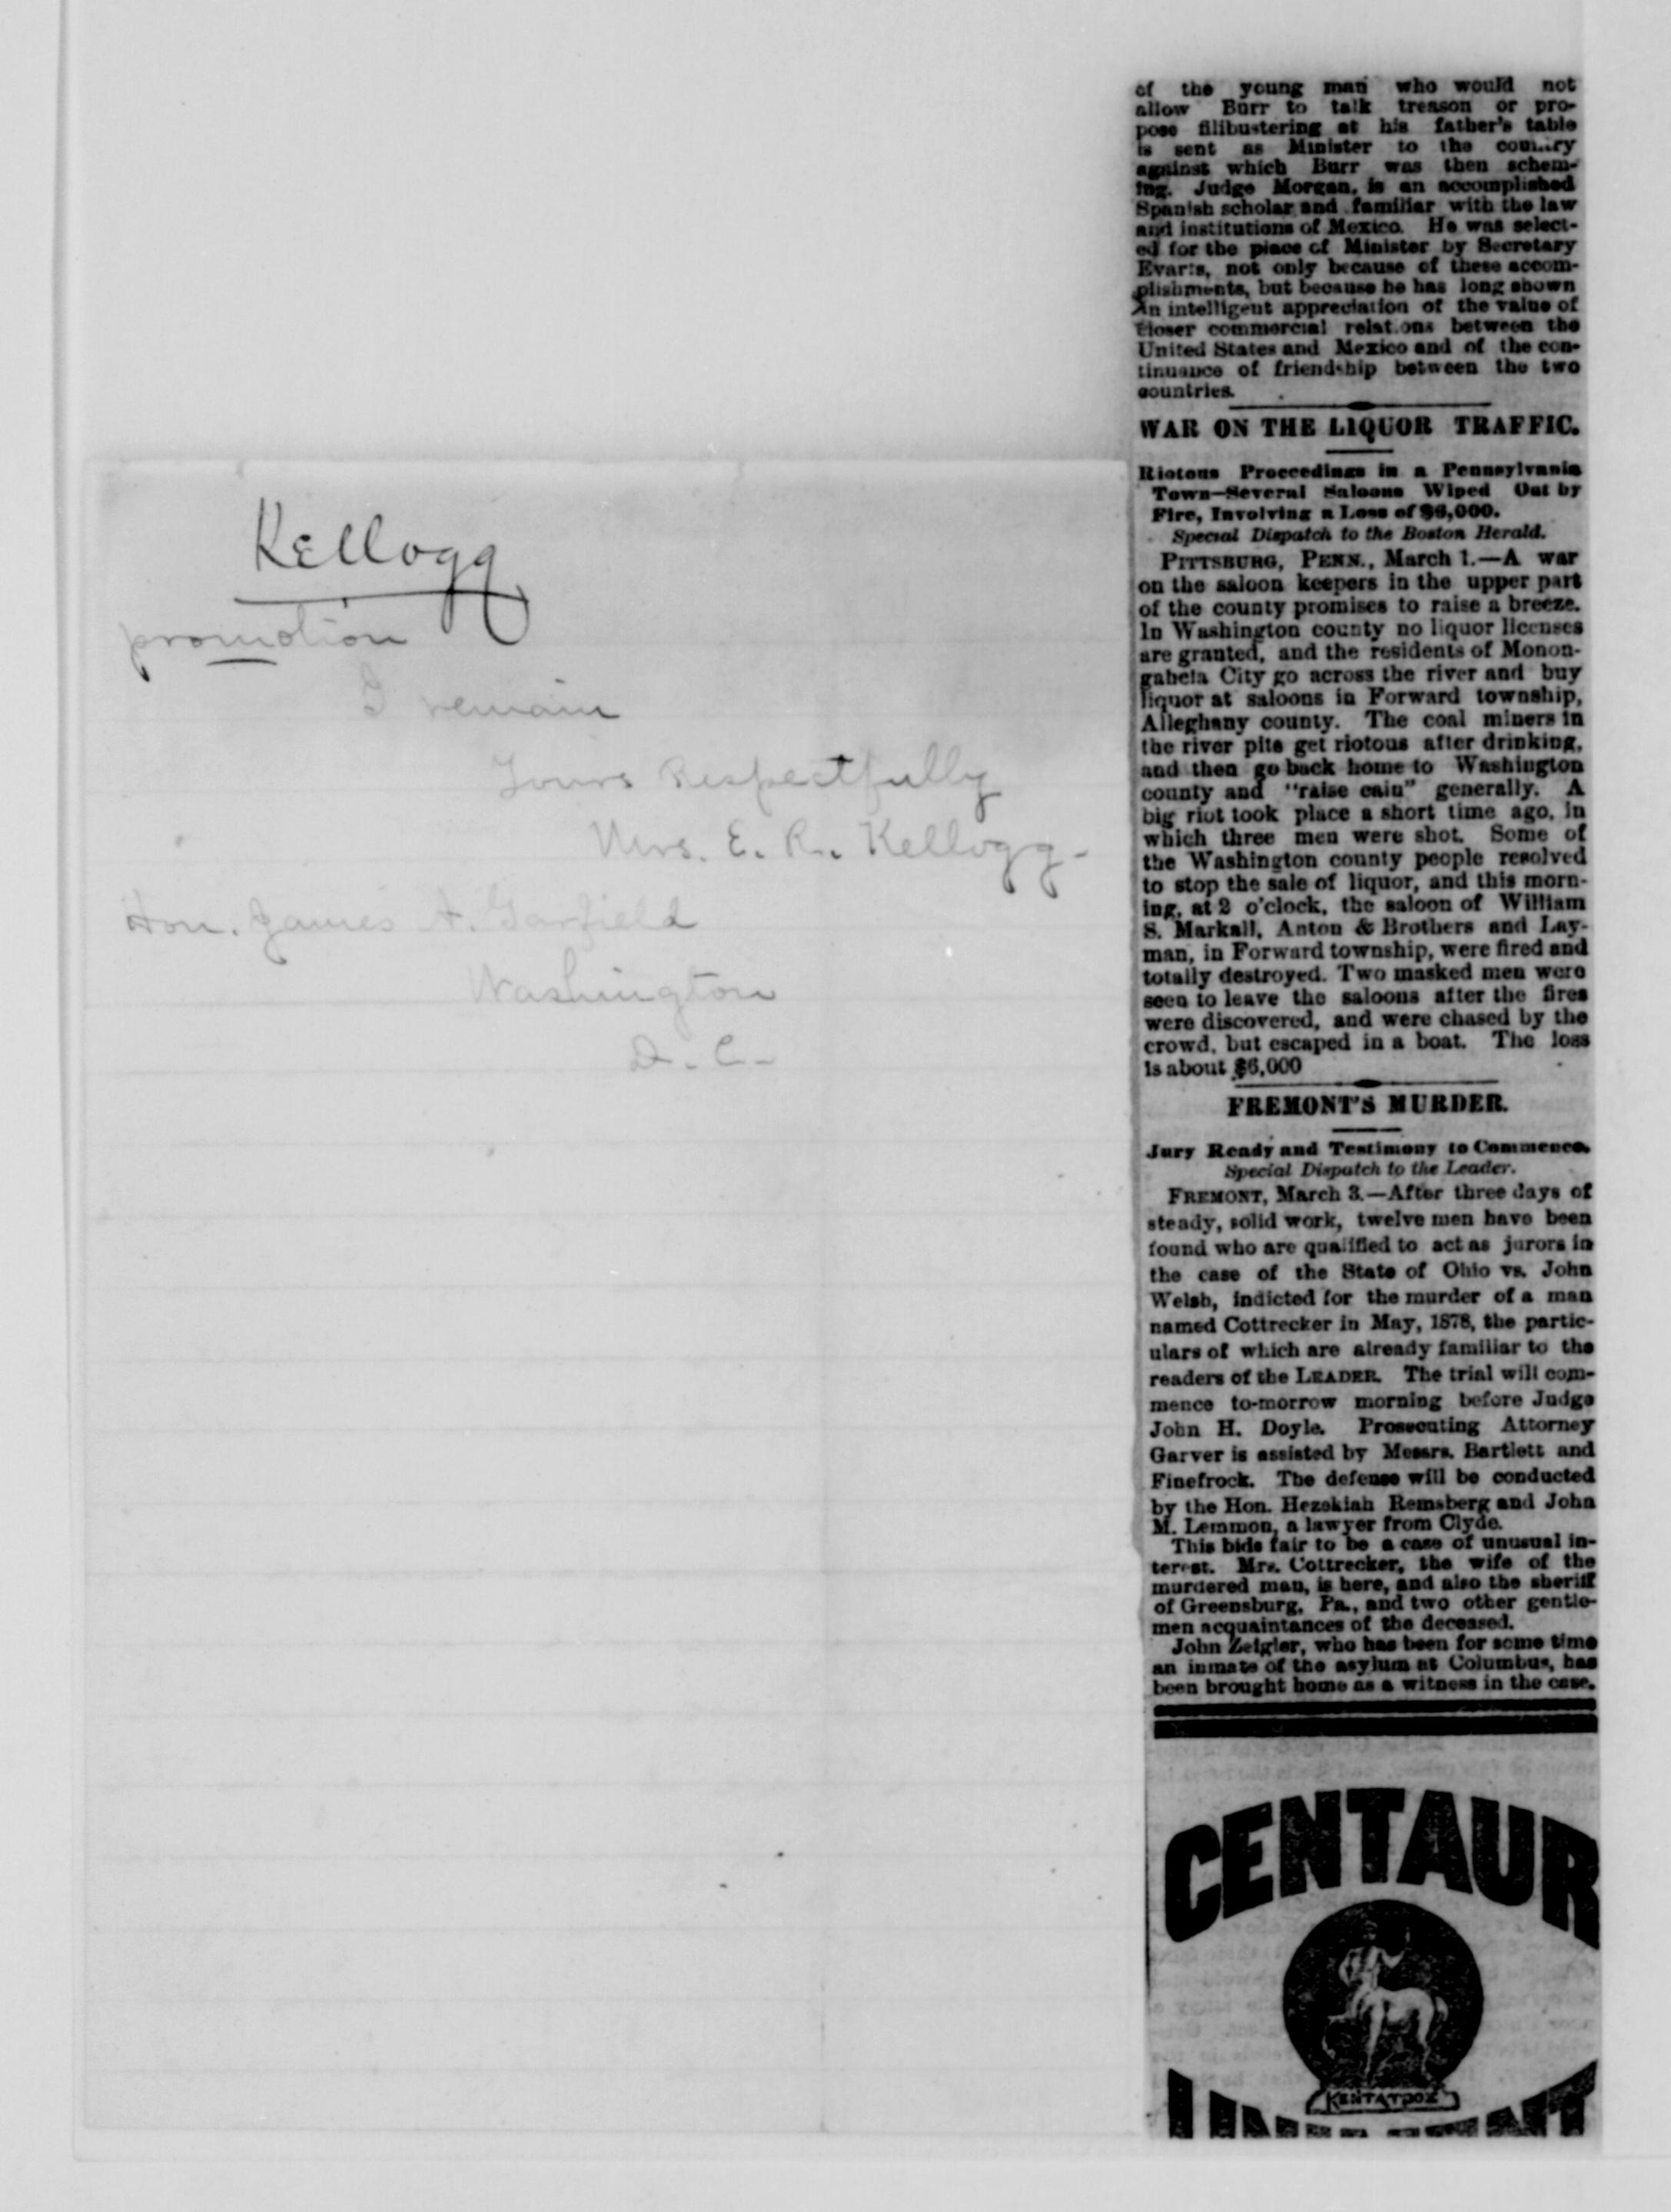 Kellogg
promotion
I remain
Yours Respectfully
Mrs. E. R. Kellogg-
Hon. James A. Garfield
Washington
D. C-
of the young man who would not
allow Burr to talk treason or pro-
pose filibustering at his father's table
is sent as Minister to the country
against which Burr was then schem-
ing. Judge Morgan, is an accomplished
Spanish scholar and familiar with the law
and institutions of Mexico. He was select-
ed for the place of Minister by Secretary
Evarts, not only because of these accom-
plishments, but because he has long shown
an intelligent appreciation of the value of
closer commercial relations between the
United States and Mexico and of the con-
tinuance of friendship between the two
countries.
WAR ON THE LIQUOR TRAFFIC.
Riotous Proceedings in a Pennsylvania
Town—Several Saloons Wiped Out by
Fire, Involving a Loss of $6,000.
Special Dispatch to the Boston Herald.
PITTSBURG, PENN., March 1.—A war
on the saloon keepers in the upper part
of the county promises to raise a breeze.
In Washington county no liquor licenses
are granted, and the residents of Monon-
gahela City go across the river and buy
liquor at saloons in Forward township,
Alleghany county. The coal miners in
the river pits get riotous after drinking,
and then go back home to Washington
county and "raise cain" generally. A
big riot took place a short time ago, in
which three men were shot. Some of
the Washington county people resolved
to stop the sale of liquor, and this morn-
ing, at 2 o'clock, the saloon of William
S. Markall, Anton & Brothers and Lay-
man, in Forward township, were fired and
totally destroyed. Two masked men were
seen to leave the saloons after the fires
were discovered, and were chased by the
crowd, but escaped in a boat. The loss
is about $6,000
FREMONT'S MURDER.
Jury Ready and Testimony to Commence.
Special Dispatch to the Leader.
FREMONT, March 3.—After three days of
steady, solid work, twelve men have been
found who are qualified to act as jurors in
the case of the State of Ohio vs. John
Welsh, indicted for the murder of a man
named Cottrecker in May, 1878, the partic-
ulars of which are already familiar to the
readers of the LEADER. The trial will com-
mence to-morrow morning before Judge
John H. Doyle. Prosecuting Attorney
Garver is assisted by Messrs. Bartlett and
Finefrock. The defense will be conducted
by the Hon. Hezekiah Remsberg and John
M. Lemmon, a lawyer from Clyde.
This bids fair to be a case of unusual in-
terest. Mrs. Cottrecker, the wife of the
murdered man, is here, and also the sheriff
of Greensburg, Pa., and two other gentle-
men acquaintances of the deceased.
John Zeigler, who has been for some time
an inmate of the asylum at Columbus, has
been brought home as a witness in the case.
CENTAUR